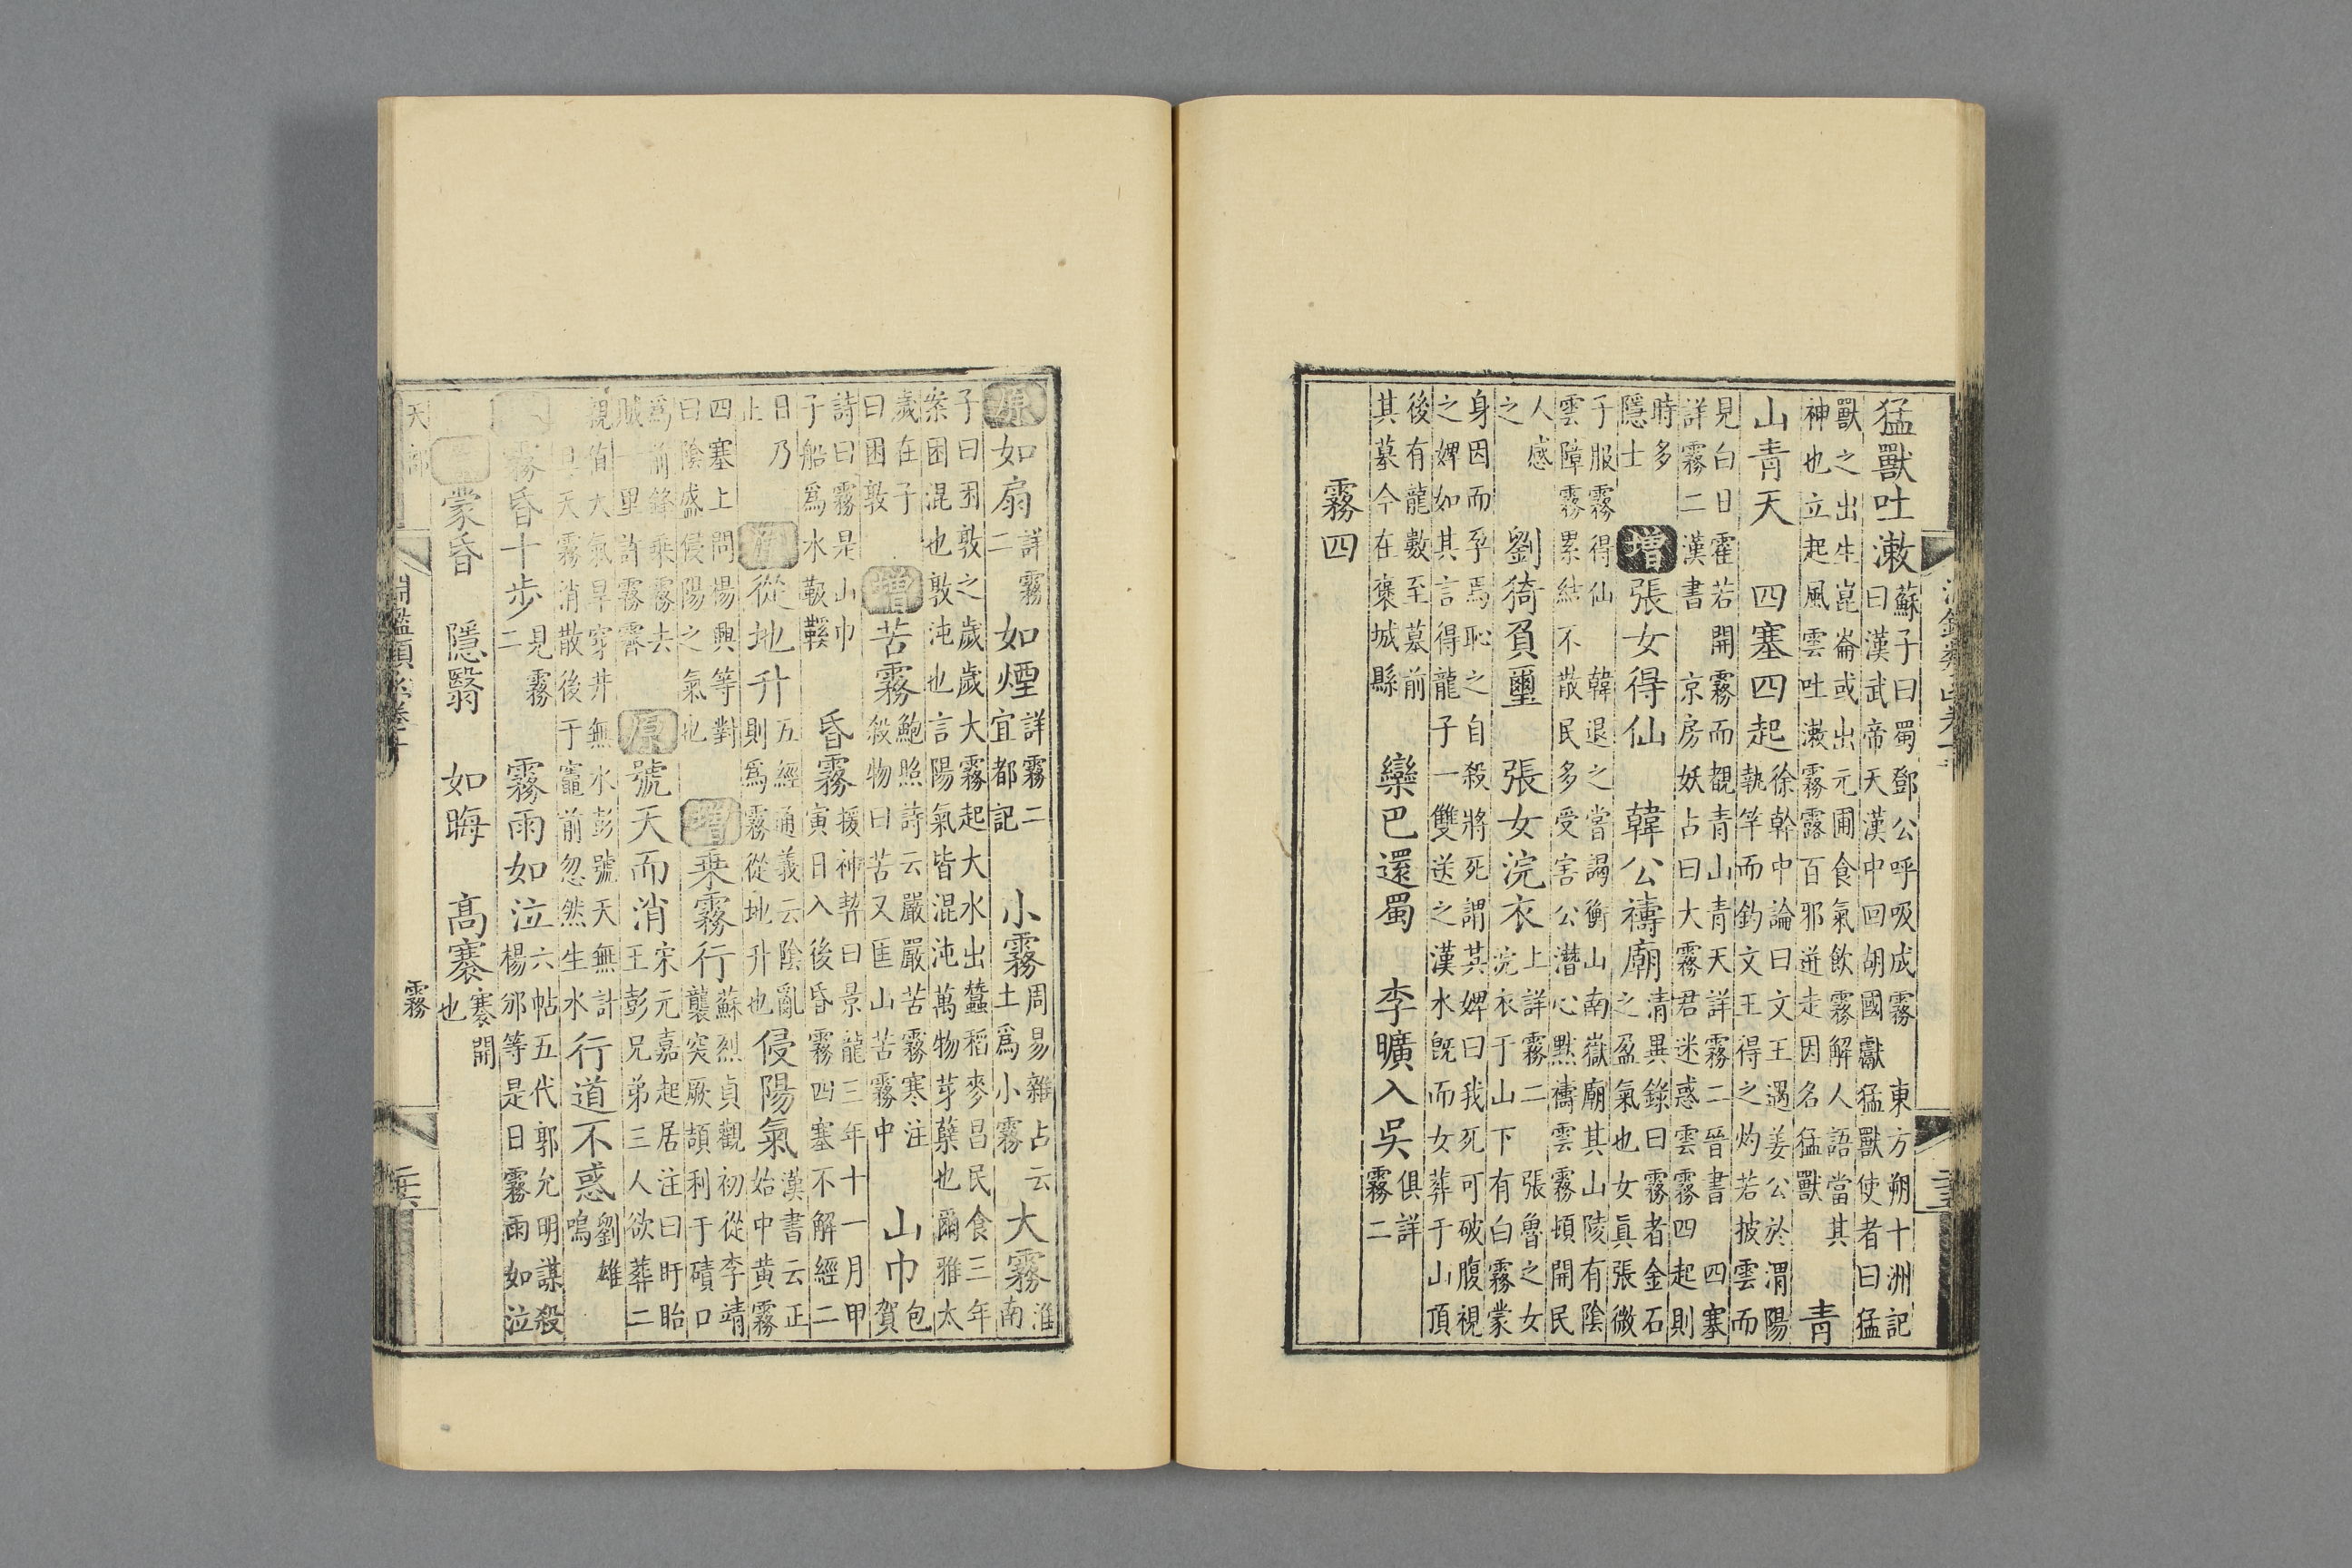 猛獸吐漱 蘇子曰蜀鄧公呼吸成霧 東方朔十洲記
曰漢武帝天漢中回胡國獻猛獸使者曰猛
獸之出生崑崙或出元圃食氣飲霧解人語當其
神也立起風雲吐漱霧露百邪迸走因名猛獸 青
山青天 四塞四起 徐幹中論曰文王遇姜公於渭陽
執竿而釣文王得之灼若披雲而
見白日霍若開霧而覩青山青天詳霧二晉書 四塞
詳霧二漢書 京房妖占曰大霧君迷惑雲霧四起則
時多
隱士 增 張女得仙 韓公禱廟 清異錄曰霧者金石
之盈氣也女真張微
子服霧得仙 韓退之嘗謁衡山南嶽廟其山陵有陰
雲障霧累結不散民多受害公潛心默禱雲霧頓開民
人感
之 劉猗負璽 張女浣衣 上詳霧二 張魯之女
浣衣于山下有白霧蒙
身因而孕焉恥之自殺將死謂其婢曰我死可破腹視
之婢如其言得龍子一雙送之漢水旣而女葬于山頂
後有龍數至墓前
其墓今在褒城縣 欒巴還蜀 李曠入吳 俱詳
霧二
霧四
原 如扇 詳霧
二 如煙 詳霧二
宜都記 小霧 周易雜占云
土爲小霧 大霧 淮
南
子曰困敦之歲歲大霧起大水出蠶稻麥昌民食三年
案困混也敦沌也言陽氣皆混沌萬物芽櫱也爾雅太
歲在子
曰困敦 增 苦霧 鮑照詩云嚴嚴苦霧寒注
殺物曰苦又匡山苦霧中 山巾 包
賀
詩曰霧是山巾
子船爲水靸鞵 昏霧 援神契曰景龍三年十一月甲
寅日入後昏霧四塞不解經二
日乃
止 原 從地升 五經通義云陰亂
則爲霧從地升也 侵陽氣 漢書云正
始中黄霧
四塞上問楊興等對
曰陰盛侵陽之氣也 增 乗霧行 蘇烈貞觀初從李靖
襲突厥頡利于磧口
爲前鋒乘霧去
賊一里許霧霽 原 號天而消 宋元嘉起居注曰盱眙
王彭兄弟三人欲葬二
親值大氣旱穿井無水彭號天無計
旦天霧消散後于竈前忽然生水 行道不惑 劉雄
鳴
霧昏十步 見霧
二 霧雨如泣 六帖五代郭允明謀殺
楊邠等是日霧雨如泣
蒙昏 隱翳 如晦 高褰 褰開
也
天部 霧
淵鑑類函卷十